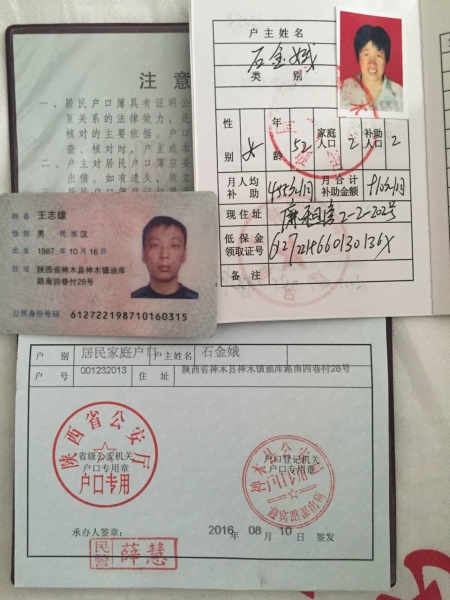 注意
一、居民户口簿具有证明公
互关系的法律效力，是
核对的主要依据。户口
查、核对时，户主或本
二、户主对居民户口簿应妥
出借。如有遗失，须立
户主姓名
石金娥
类别
性别 女 年龄 52 家庭人口 2 补助人口 2
月人均补助 月合计补助金额
现住址 康和2-2-202号
低保金领取证号 61272219660130136X
备注
姓名 王志雄
性别 男 民族 汉
出生 1987年10月16日
住址 陕西省神木县神木镇油库
路南四巷付28号
公民身份号码 612722198710160315
户别 居民家庭户口 户主姓名 石金娥
户号 001232013 住址 陕西省神木县神木镇油库路南四巷村28号
陕西省公安厅
户口专用
省级公安机关
户口专用章
户口登记机关
户口专用章
承办人签章：
民警 薛慧
2016年08月10日签发